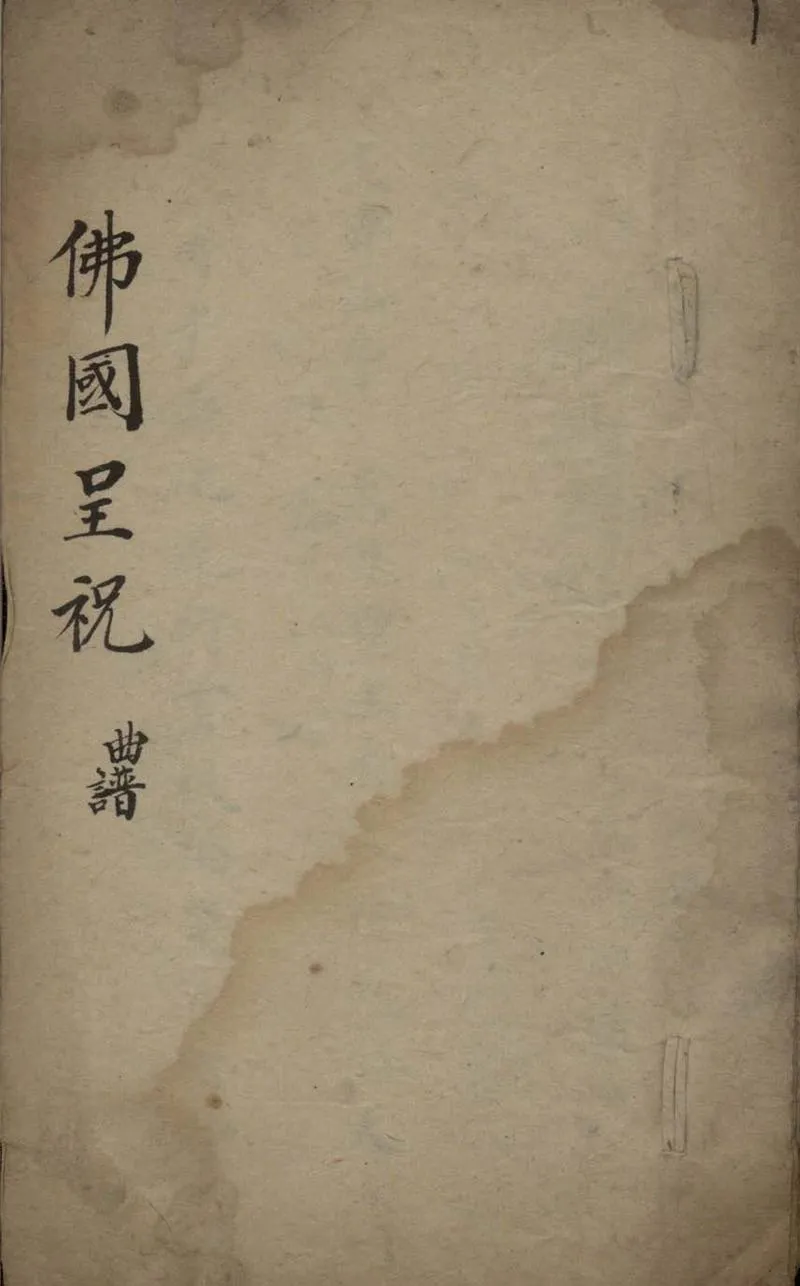 佛國呈祝
曲譜